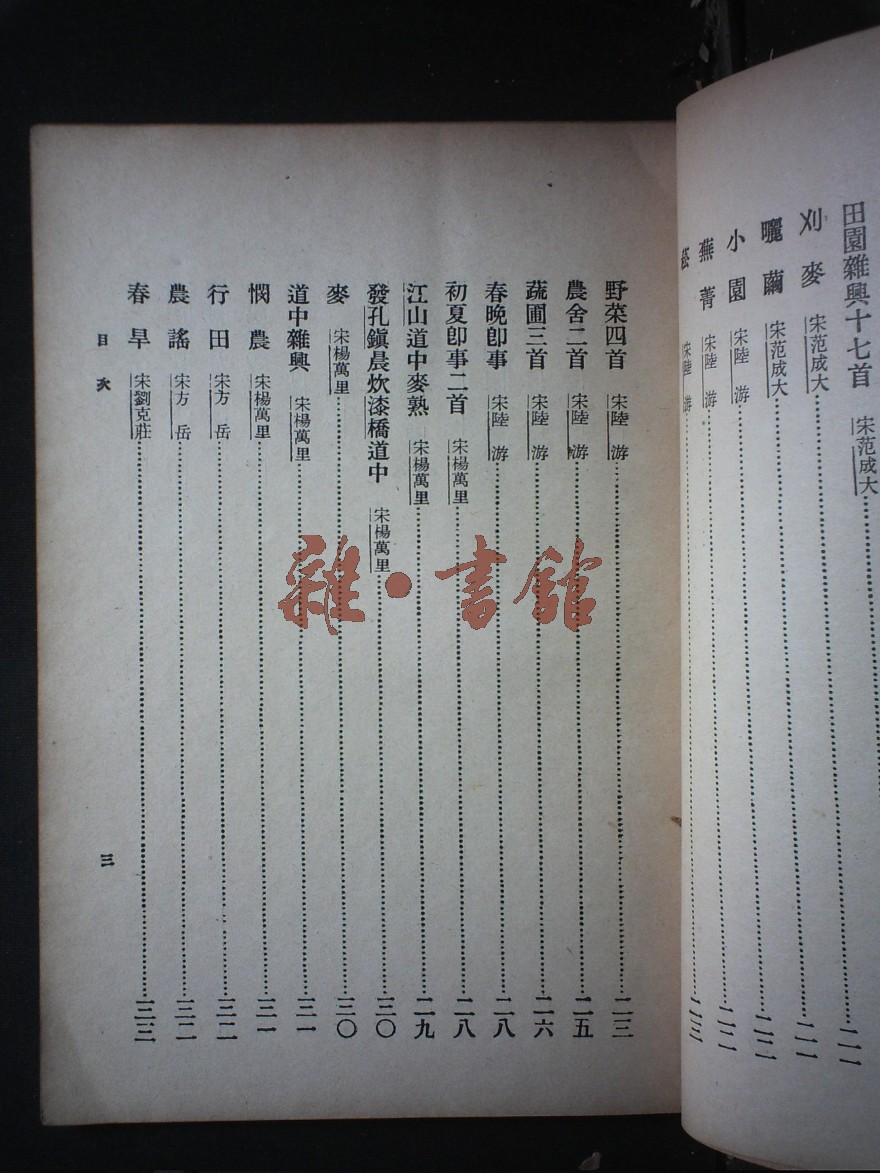 田園雜興十七首 宋范成大 二一
刈麥 宋范成大 二一
曬繭 宋范成大 二二
小園 宋陸游 二二
蕪菁 宋陸游 二三
菘 宋陸游
野菜四首 宋陸游 二三
農舍二首 宋陸游 二五
蔬圃三首 宋陸游 二六
春晚卽事 宋陸游 二八
初夏卽事二首 宋楊萬里 二八
江山道中麥熟 宋楊萬里 二九
發孔鎭晨炊漆橋道中 宋楊萬里 三〇
麥 宋楊萬里 三〇
道中雜興 宋楊萬里 三一
憫農 宋楊萬里 三一
行田 宋方岳 三二
農謠 宋方岳 三二
春旱 宋劉克莊 三三
目次 三
雜·書館